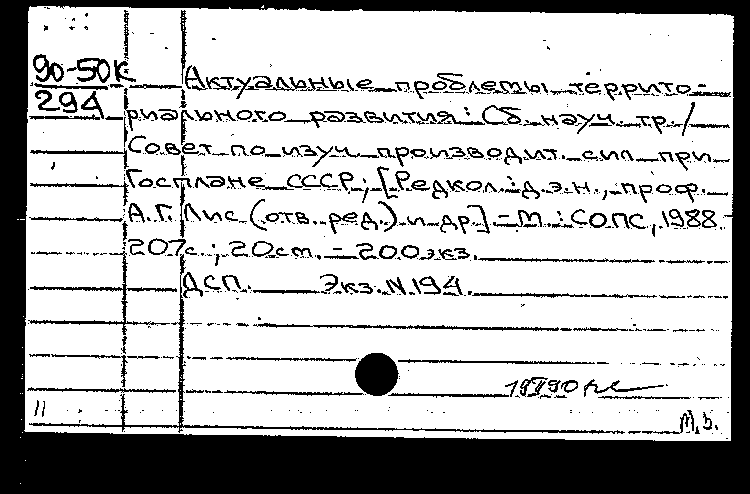 90-50К
294
Актуальные проблемы террито-
риального развития: Сб. науч. тр./
Совет по изуч. производит. сил при
Госплане СССР; [Редкол.: д.э.н., проф.
А.Г. Лис (отв. ред.) и др.] - М.: СОПС, 1988
207с.; 20см. - 200экз.
ДСП. Экз. N194.
11